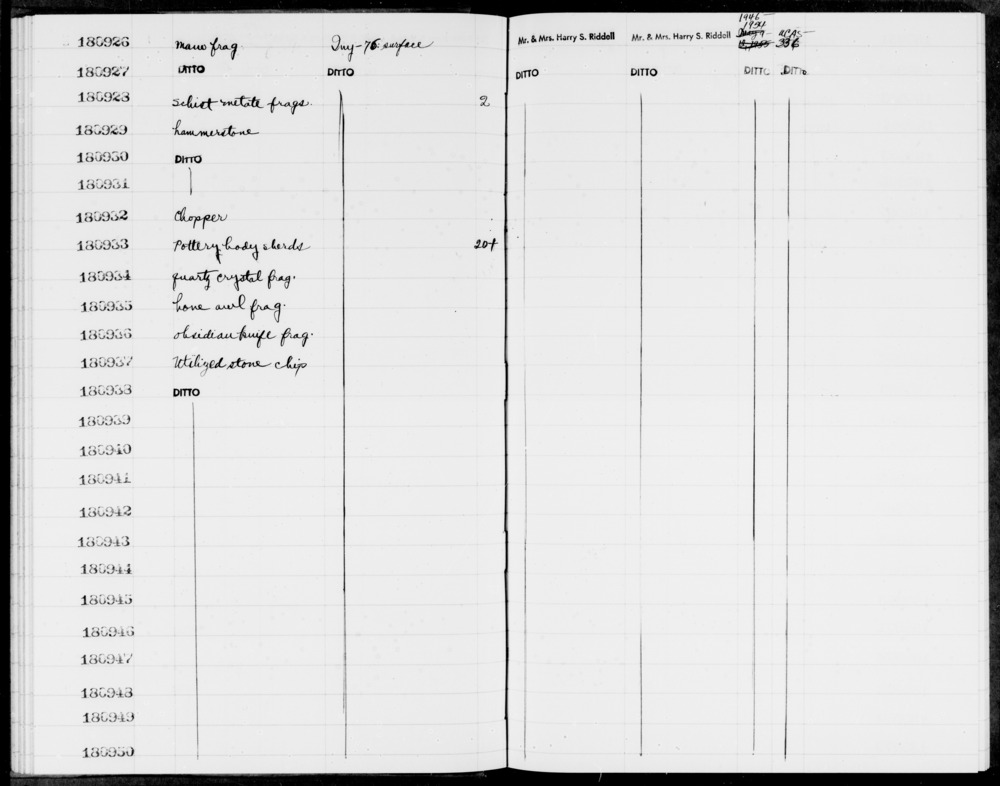 180926 Mano frag Iny-76 surface Mr. & Mrs. Harry S. Riddell Mr. & Mrs. Harry S. Riddell 1946- 1954 ACAS- 336
180927 DITTO DITTO DITTO DITTO DITTO DITTO
180928 schist metate frags. 2
180929 hammerstone
180930 DITTO
180931
180932 Chopper
180933 Pottery body sherds 20+
180934 quartz crystal frag.
180935 bone awl frag.
180936 obsidian knife frag.
180937 Utilized stone chip
180938 DITTO
180939
180940
180941
180942
180943
180944
180945
180946
180947
180948
180949
180950